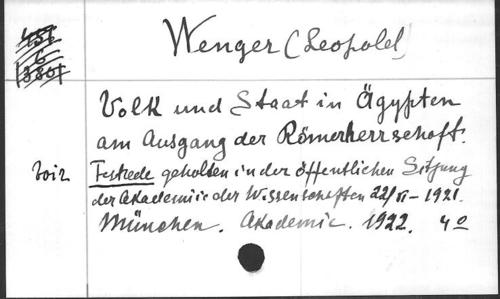 Wenger (Leopold)
Volk und Staat in Ägypten
am Ausgang der Römerherrschaft.
Festrede gehalten in der öffentlichen Sitzung
der Akademie der Wissenschaften 22/VI - 1921.
München. Akademie. 1922. 4º